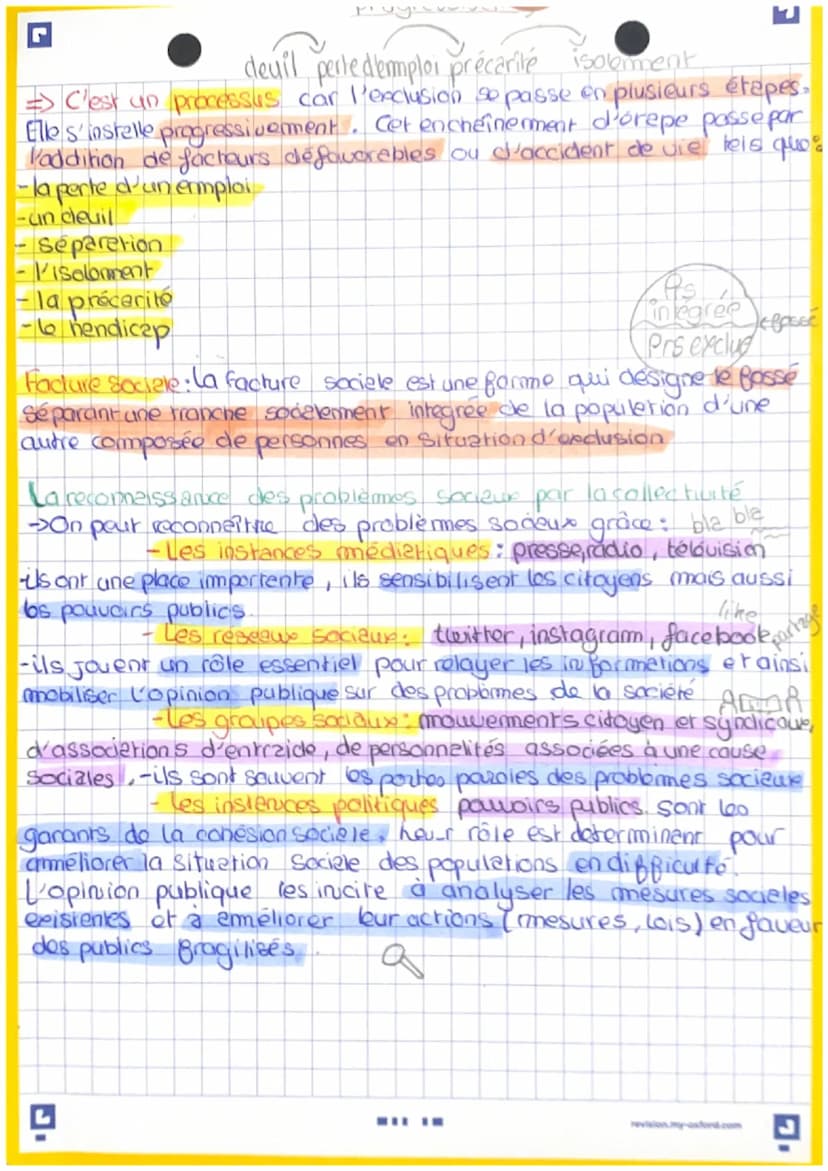 progressive
deuil perte d'emploi précarité isolement
=> C'est un processus car l'exclusion se passe en plusieurs étapes.
Elle s'installe progressivement. Cet encheînement d'érepe passe par
l'addition de facteurs défavorables ou d'accident de vie tels que:
- la perte d'un emploi
- un deuil
- séparation
- l'isolement
- la précarité
- le hendicap
Prs
intégrée
<fossé
Prs exclus
Facture sociale: la facture sociale est une forme qui désigne le fossé
séparant une tranche socialement integrée de la population d'une
autre composée de personnes en situation d'exclusion
La reconnaissance des problèmes sociaux par la collectivité
->On peut reconnaître des problèmes sociaux grâce: bla bla
- Les instances médiatiques: presse, radio, télévision
-ils ont une place importante, ils sensibilisent les citoyens mais aussi
les pouvoirs publics.
like
- Les réseaux sociaux: twitter, instagram, facebook, partage
-ils jouent un rôle essentiel pour relayer les informations et ainsi
mobiliser l'opinion publique sur des problèmes de la société
-Les groupes sociaux: mouvements citoyen et syndicaux,
d'associations d'entraide, de personnalités associées à une cause
sociales. -ils sont souvent les portes paroles des problèmes sociaux
- les instances politiques pouvoirs publics. sont les
garants de la cohésion sociale, leur rôle est déterminent pour
amméliorer la situation sociale des populations en difficulté.
L'opinion publique les incite à analyser les mesures sociales
existentes et à améliorer leur actions (mesures, lois) en faveur
des publics fragilisés.
revision.my-oxford.com